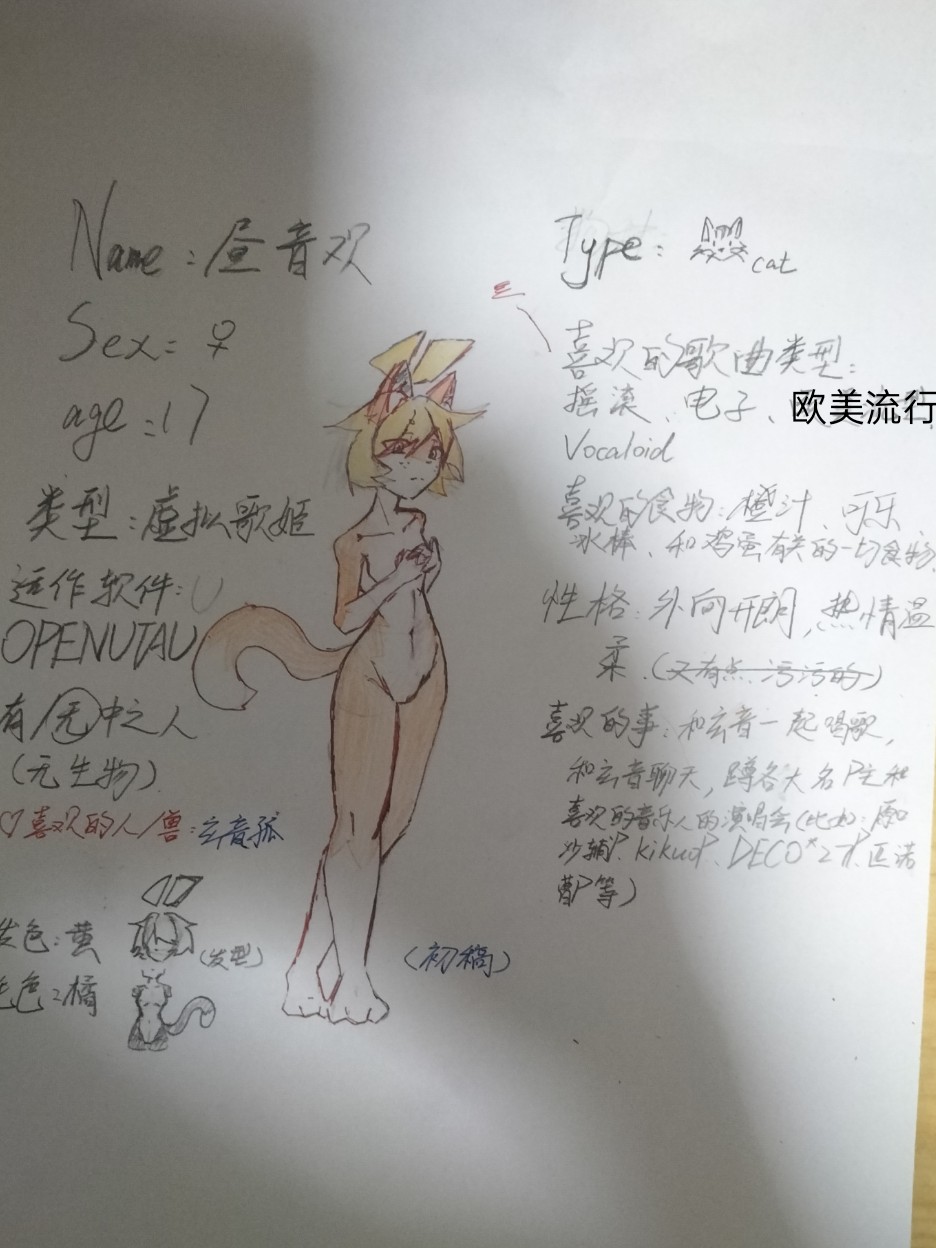 Name：昼音欢
Sex：♀
age：17
类型：虚拟歌姬
运作软件：U
OPENUTAU
有/无中之人
（无生物）
♡喜欢的人/兽：玄音狐
发色：黄
（发型）
毛色：橘
（初稿）
Type：cat
喜欢的歌曲类型：
摇滚、电子、欧美流行
Vocaloid
喜欢的食物：橙汁、可乐
冰棒、和鸡蛋有关的一切食物
性格：外向开朗，热情温
柔.（又有点污污的）
喜欢的事：和玄音一起唱歌，
和玄音聊天，蹲各大名P主和
喜欢的音乐人的演唱会（比如：原口
沙辅P、kikuoP、DECO*27P、匹诺
曹P等）